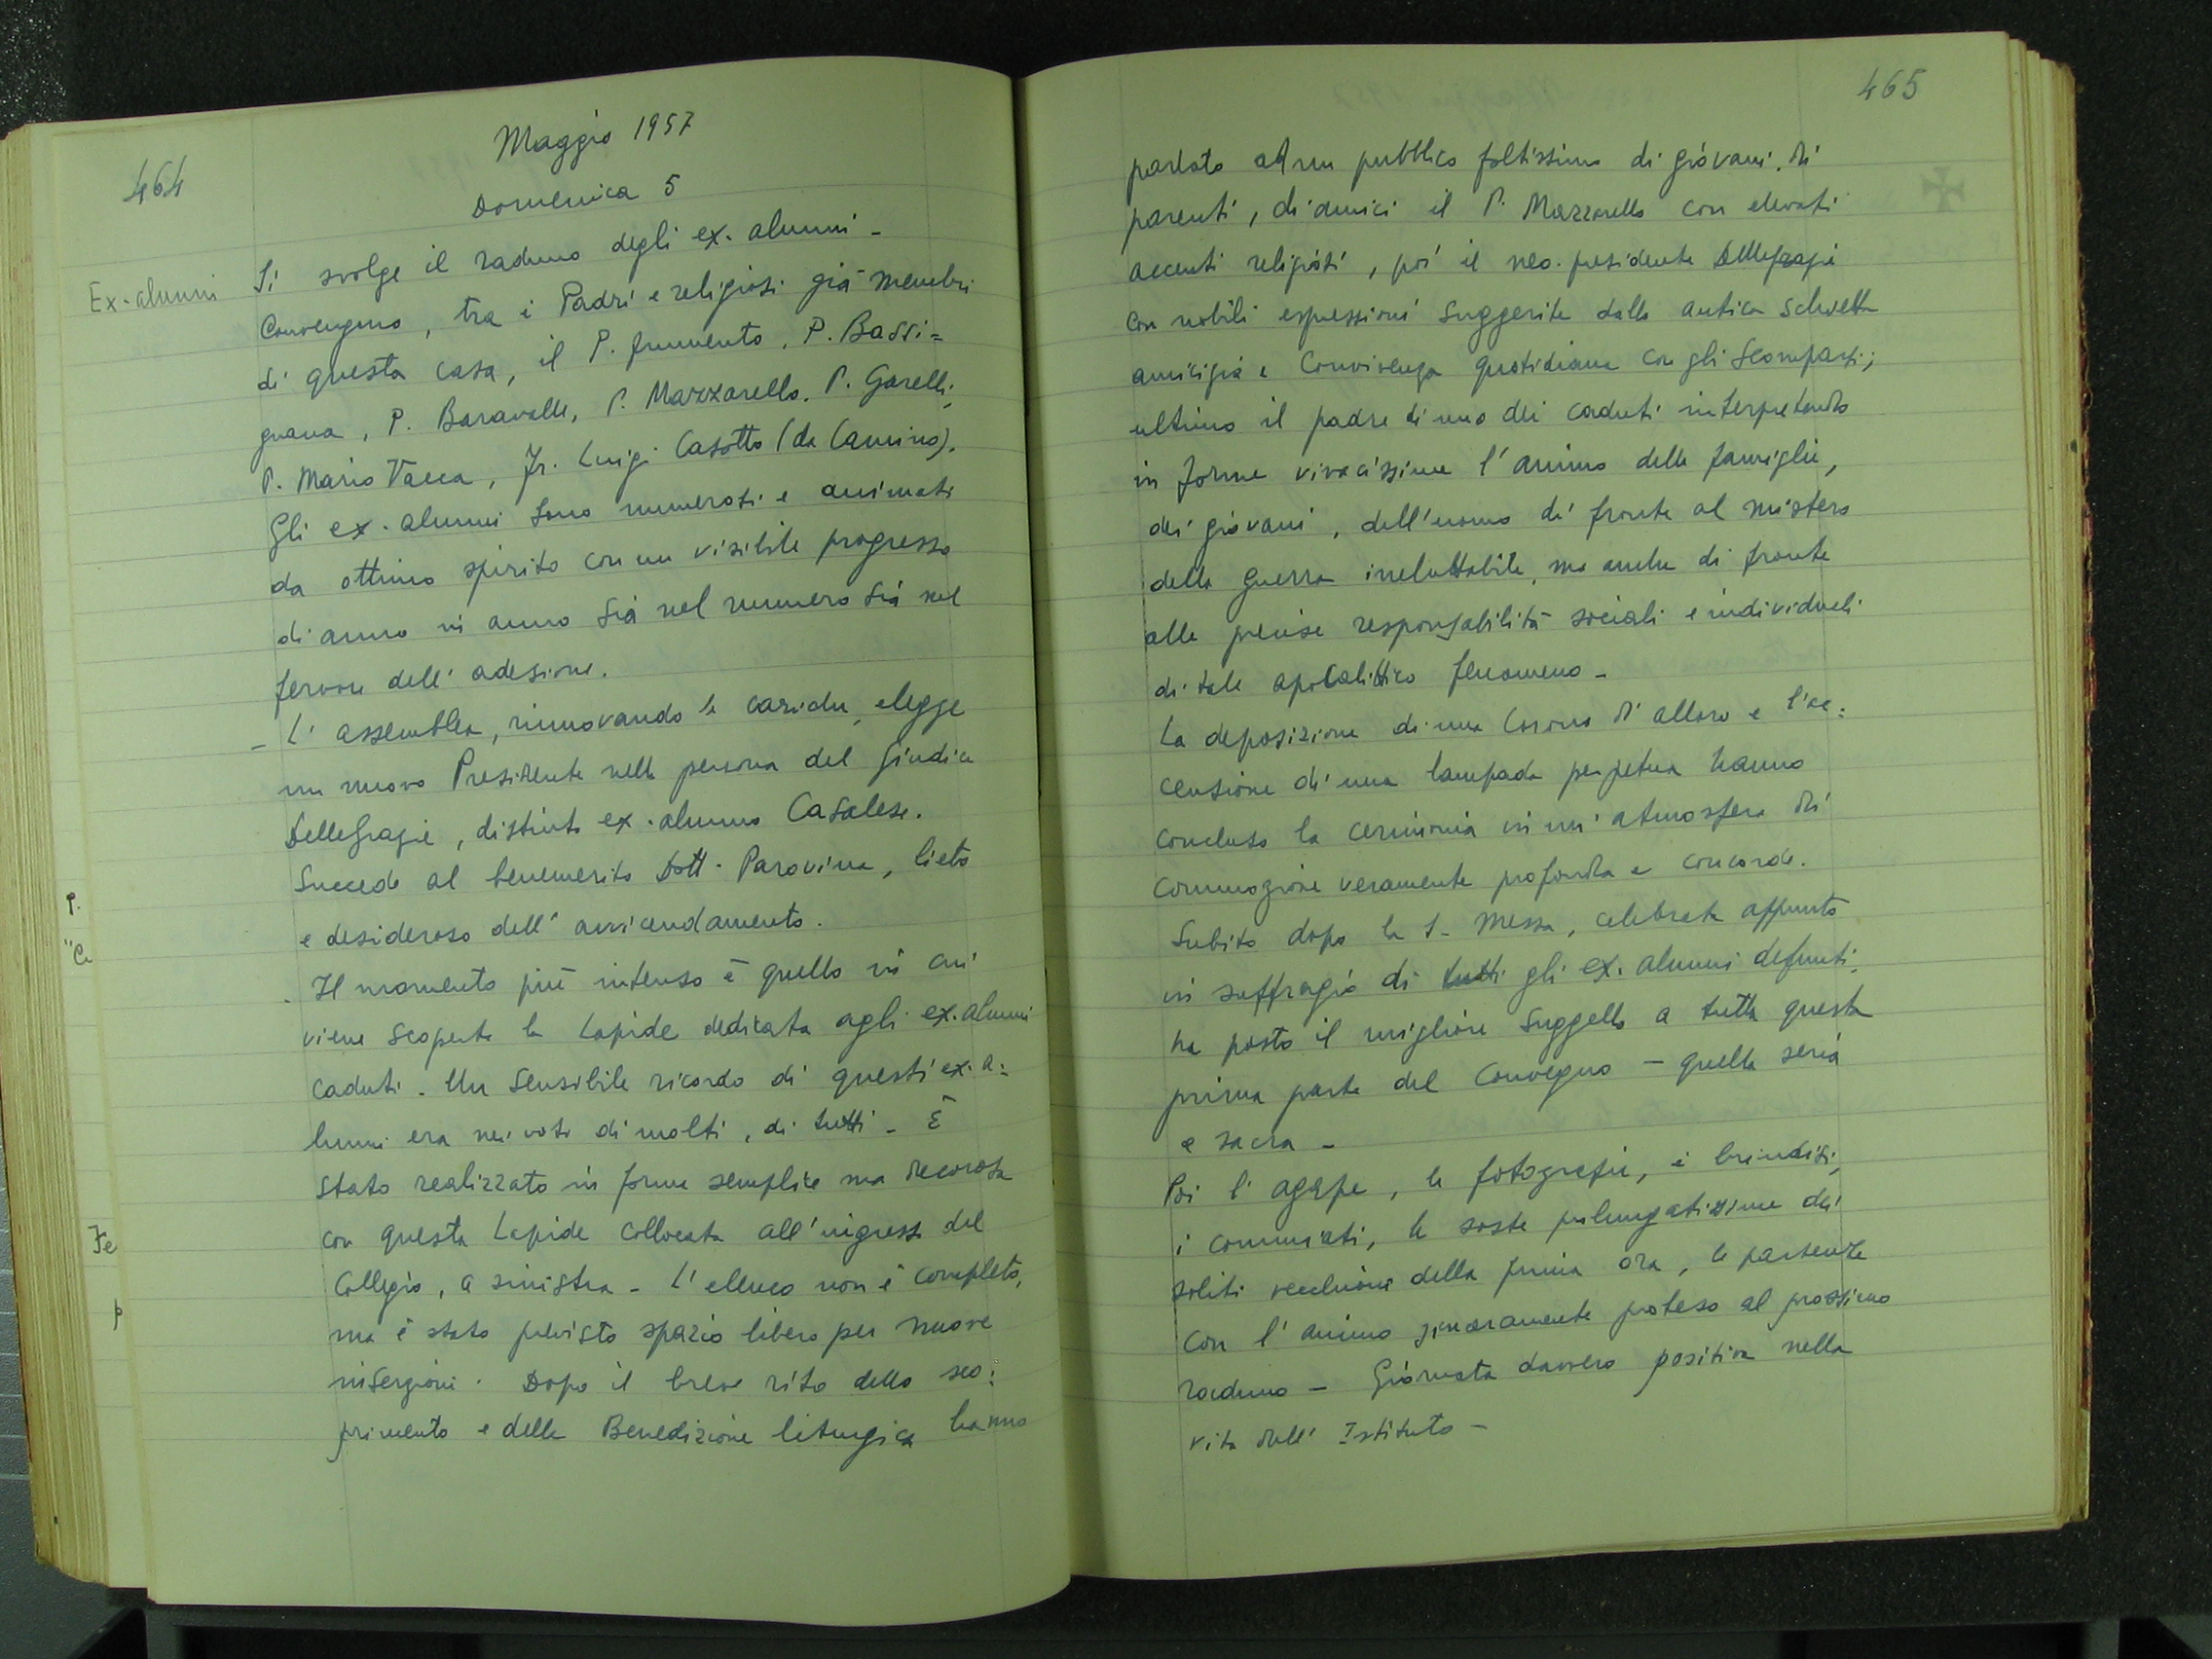 464
Maggio 1957
Domenica 5
Ex-alunni
Si svolge il raduno degli ex-alunni -
Convengono, tra i Padri e religiosi già membri
di questa casa, il P. Frumento, P. Bassi=
gnana, P. Baravalle, P. Mazzarello, P. Garelli,
P. Mario Vacca, Fr. Luigi Casotto (da Camino).
Gli ex-alunni sono numerosi e animati
da ottimo spirito con un visibile progresso
di anno in anno sia nel numero sia nel
fervore dell'adesione.
- L'assemblea, rinnovando le cariche, elegge
un nuovo Presidente nella persona del Giudice
Dellegrazie, distinto ex-alunno Casalese.
Succede al benemerito Dott. Paravina, lieto
e desideroso dell'avvicendamento.
- Il momento più intenso è quello in cui
viene scoperta la Lapide dedicata agli ex-alunni
caduti. Un sensibile ricordo di questi ex-a=
lunni era nei voti di molti, di tutti - È
stato realizzato in forma semplice ma decorosa
con questa Lapide collocata all'ingresso del
Collegio, a sinistra - L'elenco non è completo,
ma è stato previsto spazio libero per nuove
inserzioni. Dopo il breve rito dello sco=
primento e della Benedizione liturgica hanno
P.
"Ce
Fe
p
465
parlato ad un pubblico foltissimo di giovani, di
parenti, di amici il P. Mazzarello con elevati
accenti religiosi, poi il neo-presidente Dellegrazie
con nobili espressioni suggerite dalla antica schietta
amicizia e convivenza quotidiana con gli scomparsi;
ultimo il padre di uno dei caduti interpretando
in forme vivacissime l'animo delle famiglie,
dei giovani, dell'uomo di fronte al mistero
della guerra ineluttabile, ma anche di fronte
alle precise responsabilità sociali e individuali
di tale apocalittico fenomeno -
La deposizione di una corona d'alloro e l'ac=
censione di una lampada perpetua hanno
concluso la cerimonia in un'atmosfera di
commozione veramente profonda e concorde.
Subito dopo la S. Messa, celebrata appunto
in suffragio di tutti gli ex-alunni defunti,
ha posto il migliore suggello a tutta questa
prima parte del Convegno - quella seria
e sacra -
Poi l'agape, le fotografie, i brindisi,
i commiati, le soste prolungatissime dei
soliti vecchioni della prima ora, le partenze
con l'animo sinceramente proteso al prossimo
raduno - Giornata davvero positiva nella
vita dell'Istituto -